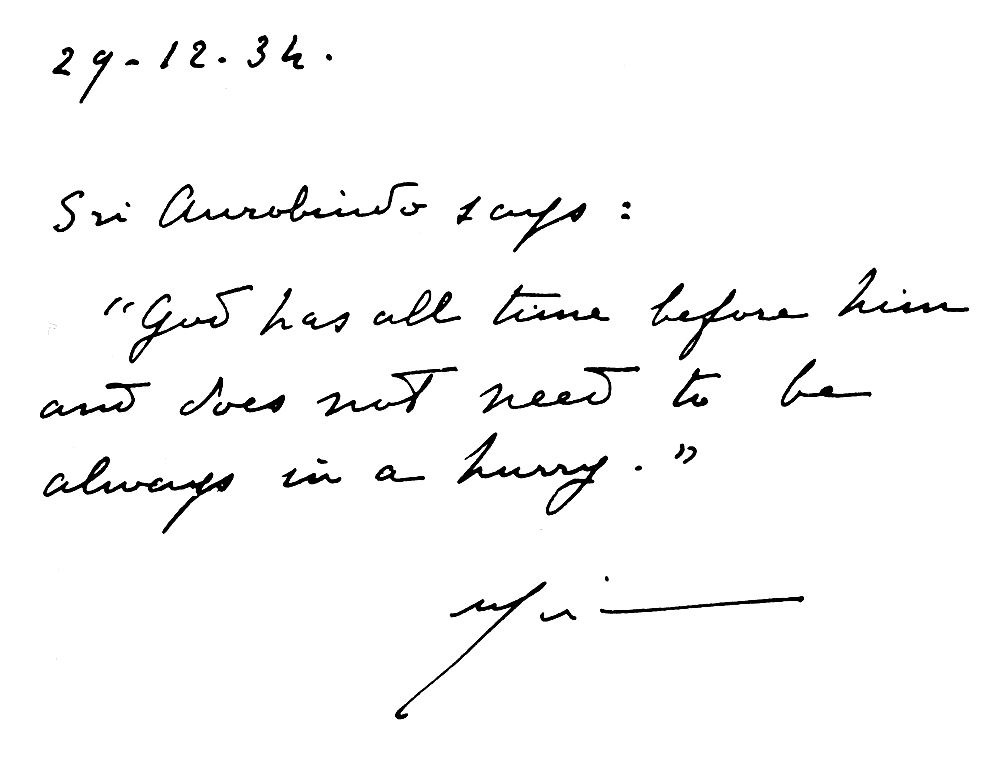 29-12.34.
Sri Aurobindo says:
"God has all time before him
and does not need to be
always in a hurry."